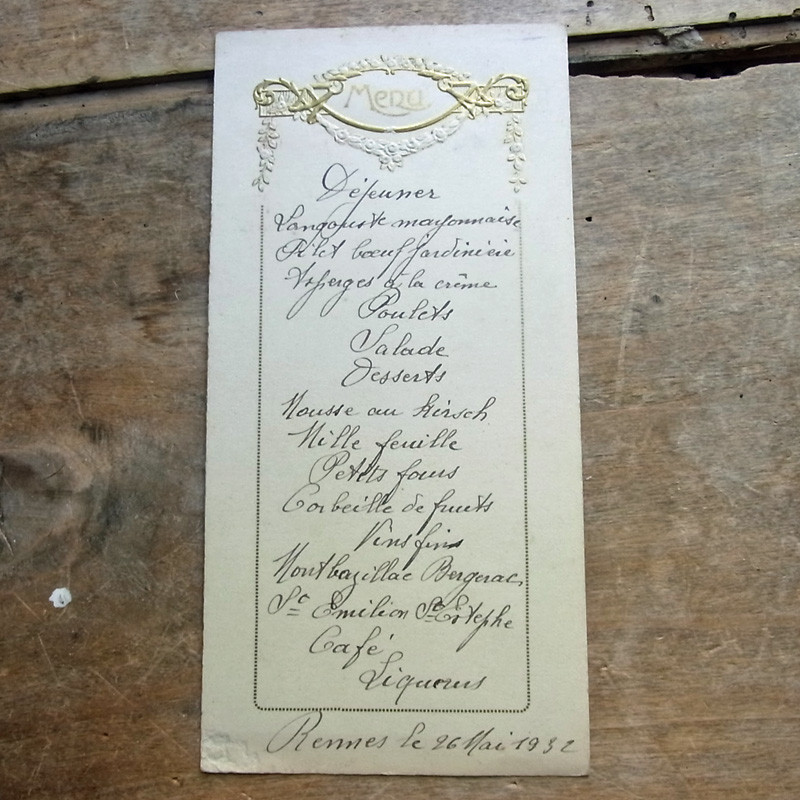 Menu
Déjeuner
Langouste mayonnaise
Filet bœuf jardinière
Asperges à la crême
Poulets
Salade
Desserts
Mousse au kirsch
Mille feuille
Petits fours
Corbeille de fruits
Vins fins
Montbazillac Bergerac
St Emilion St Estephe
Café
Liqueurs
Rennes le 26 Mai 1932